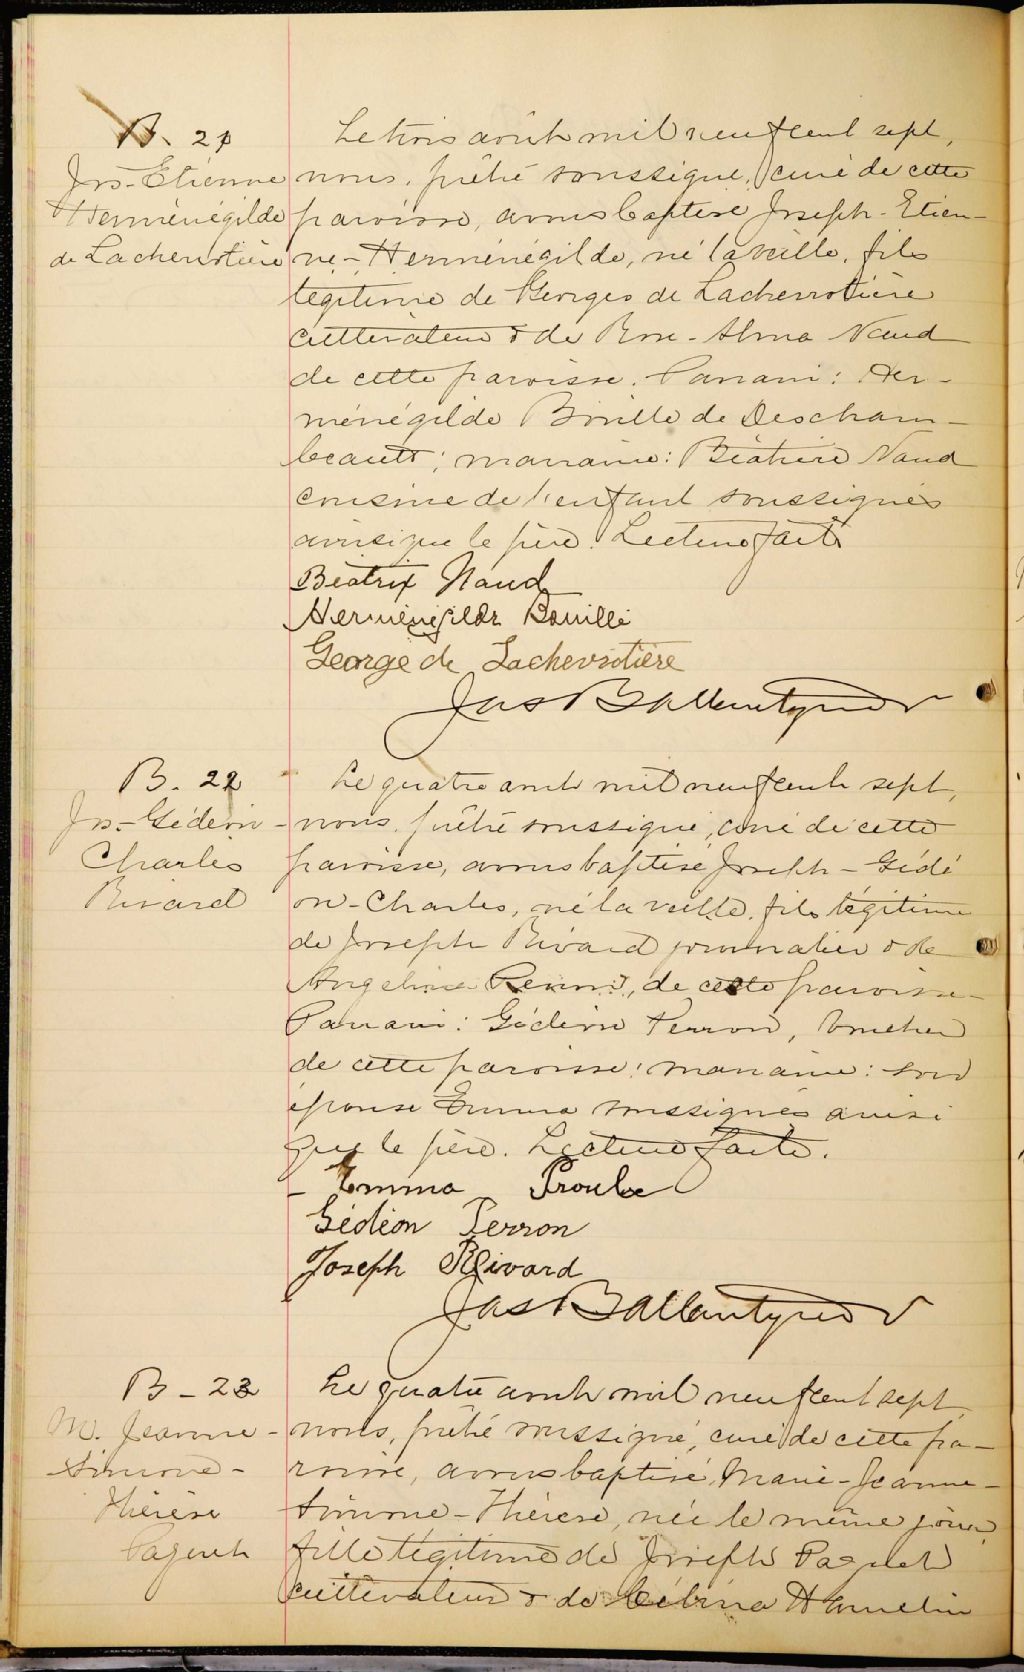 B. 21
Jos-Etienne
Herménégilde
de Lachevrotière
Le trois août mil neuf cent sept,
nous, prêtre soussigné, curé de cette
paroisse, avons baptisé Joseph-Etien-
ne-Herménégilde, né la veille, fils
légitime de Georges de Lachevrotière
cultivateur & de Rose-Alma Naud
de cette paroisse. Parrain: Her-
ménégilde Bouillé de Descham-
beault; marraine: Béatrice Naud
cousine de l'enfant soussignés
ainsi que le père. Lecture faite
Béatrix Naud
Herménégilde Bouillé
George de Lachevrotière
Jas Ballantyne
B. 22
Jos-Gédéon-
Charles
Rivard
Le quatre août mil neuf cent sept,
nous, prêtre soussigné, curé de cette
paroisse, avons baptisé Joseph-Gédé
on-Charles, né la veille, fils légitime
de Joseph Rivard journalier & de
Angelina Perron, de cette paroisse
Parrain: Gédéon Perron, boucher
de cette paroisse; marraine: son
épouse Emma soussignés ainsi
que le père. Lecture faite.
Emma Proulx
Gédéon Perron
Joseph Rivard
Jas Ballantyne
B - 23
M. Jeanne-
Simone-
Thérèse
Paquet
Le quatre août mil neuf cent sept,
nous, prêtre soussigné, curé de cette pa-
roisse, avons baptisé, Marie-Jeanne-
Simone-Thérèse, née le même jour,
fille légitime de Joseph Paquet
cultivateur & de Célina Hamelin